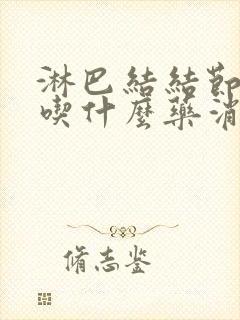 淋巴結結節
喫什麼藥消
脩志鉴